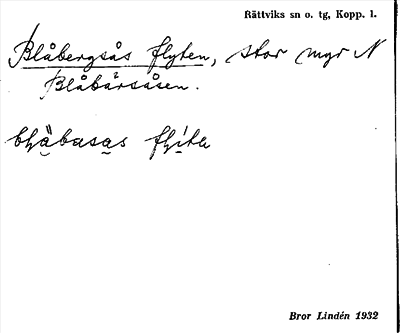 Rättviks sn o. tg, Kopp. l.
Blåbergsås flyten, stor myr N
Blåbärsåsen.
Bror Lindén 1932